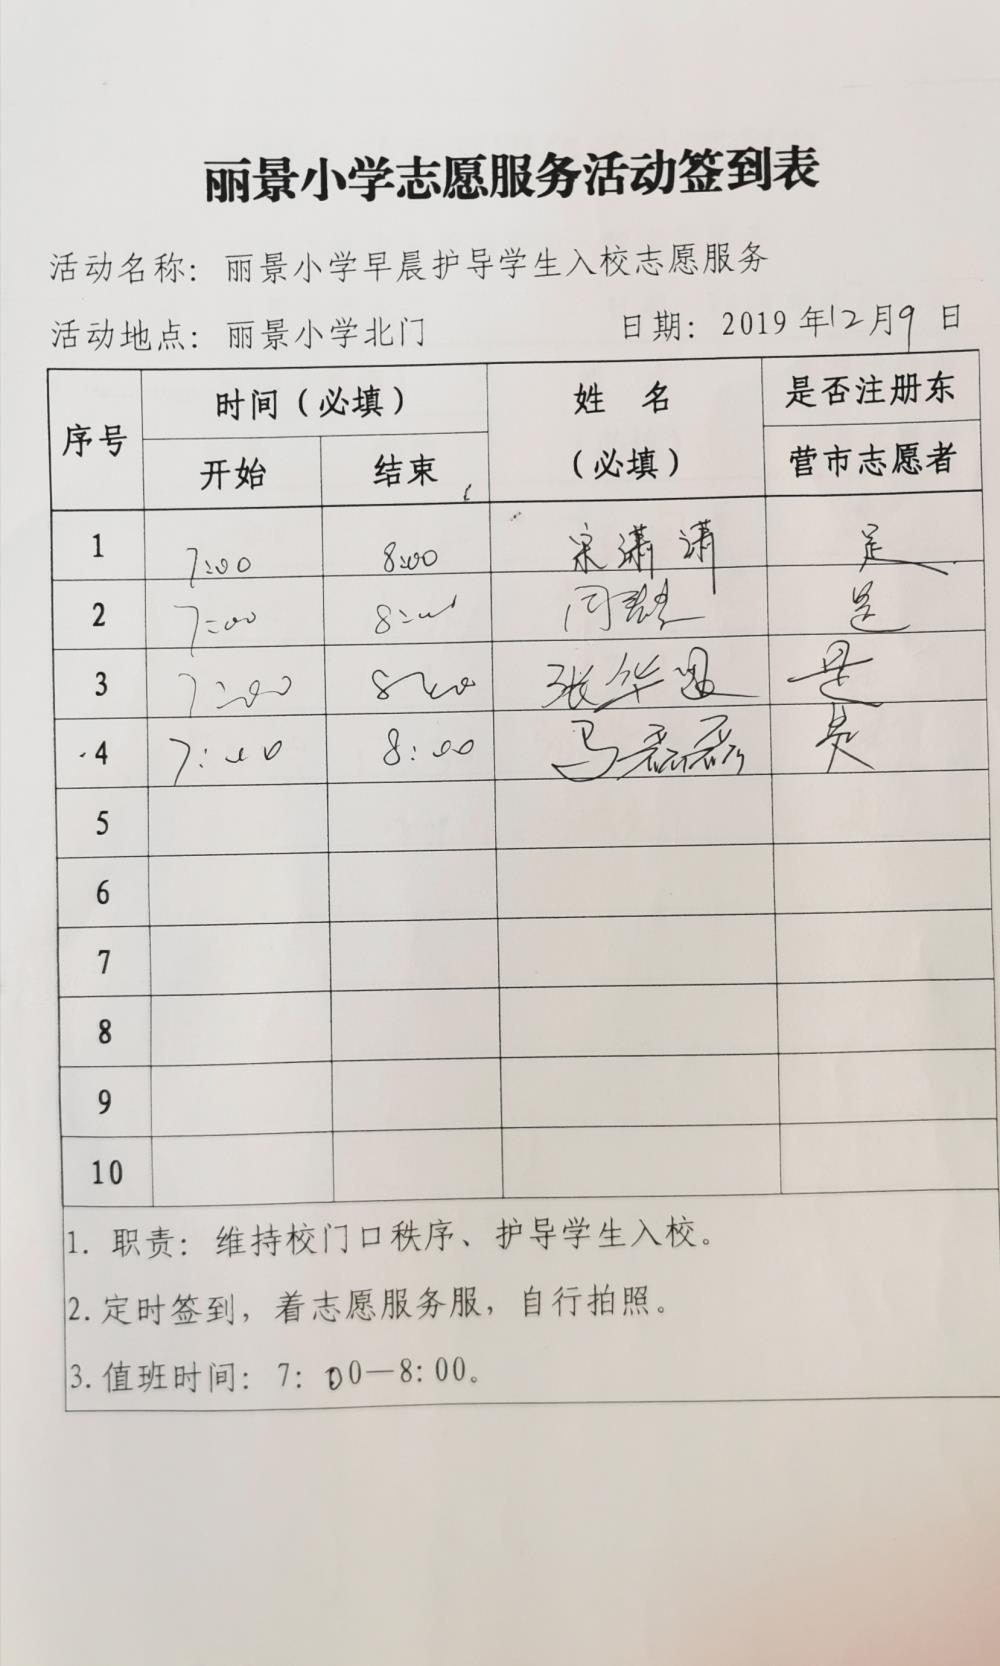 丽景小学志愿服务活动签到表
活动名称：丽景小学早晨护导学生入校志愿服务
活动地点：丽景小学北门 日期：2019年12月9日
序号 时间（必填） 姓 名 是否注册东
开始 结束 （必填） 营市志愿者
1 7:00 8:00 宋潇潇 是
2 7:00 8:00 闫 是
3 7:00 8:00 张华 是
4 7:00 8:00 马磊磊 是
5
6
7
8
9
10
1. 职责：维持校门口秩序、护导学生入校。
2.定时签到，着志愿服务服，自行拍照。
3.值班时间：7：00—8：00。